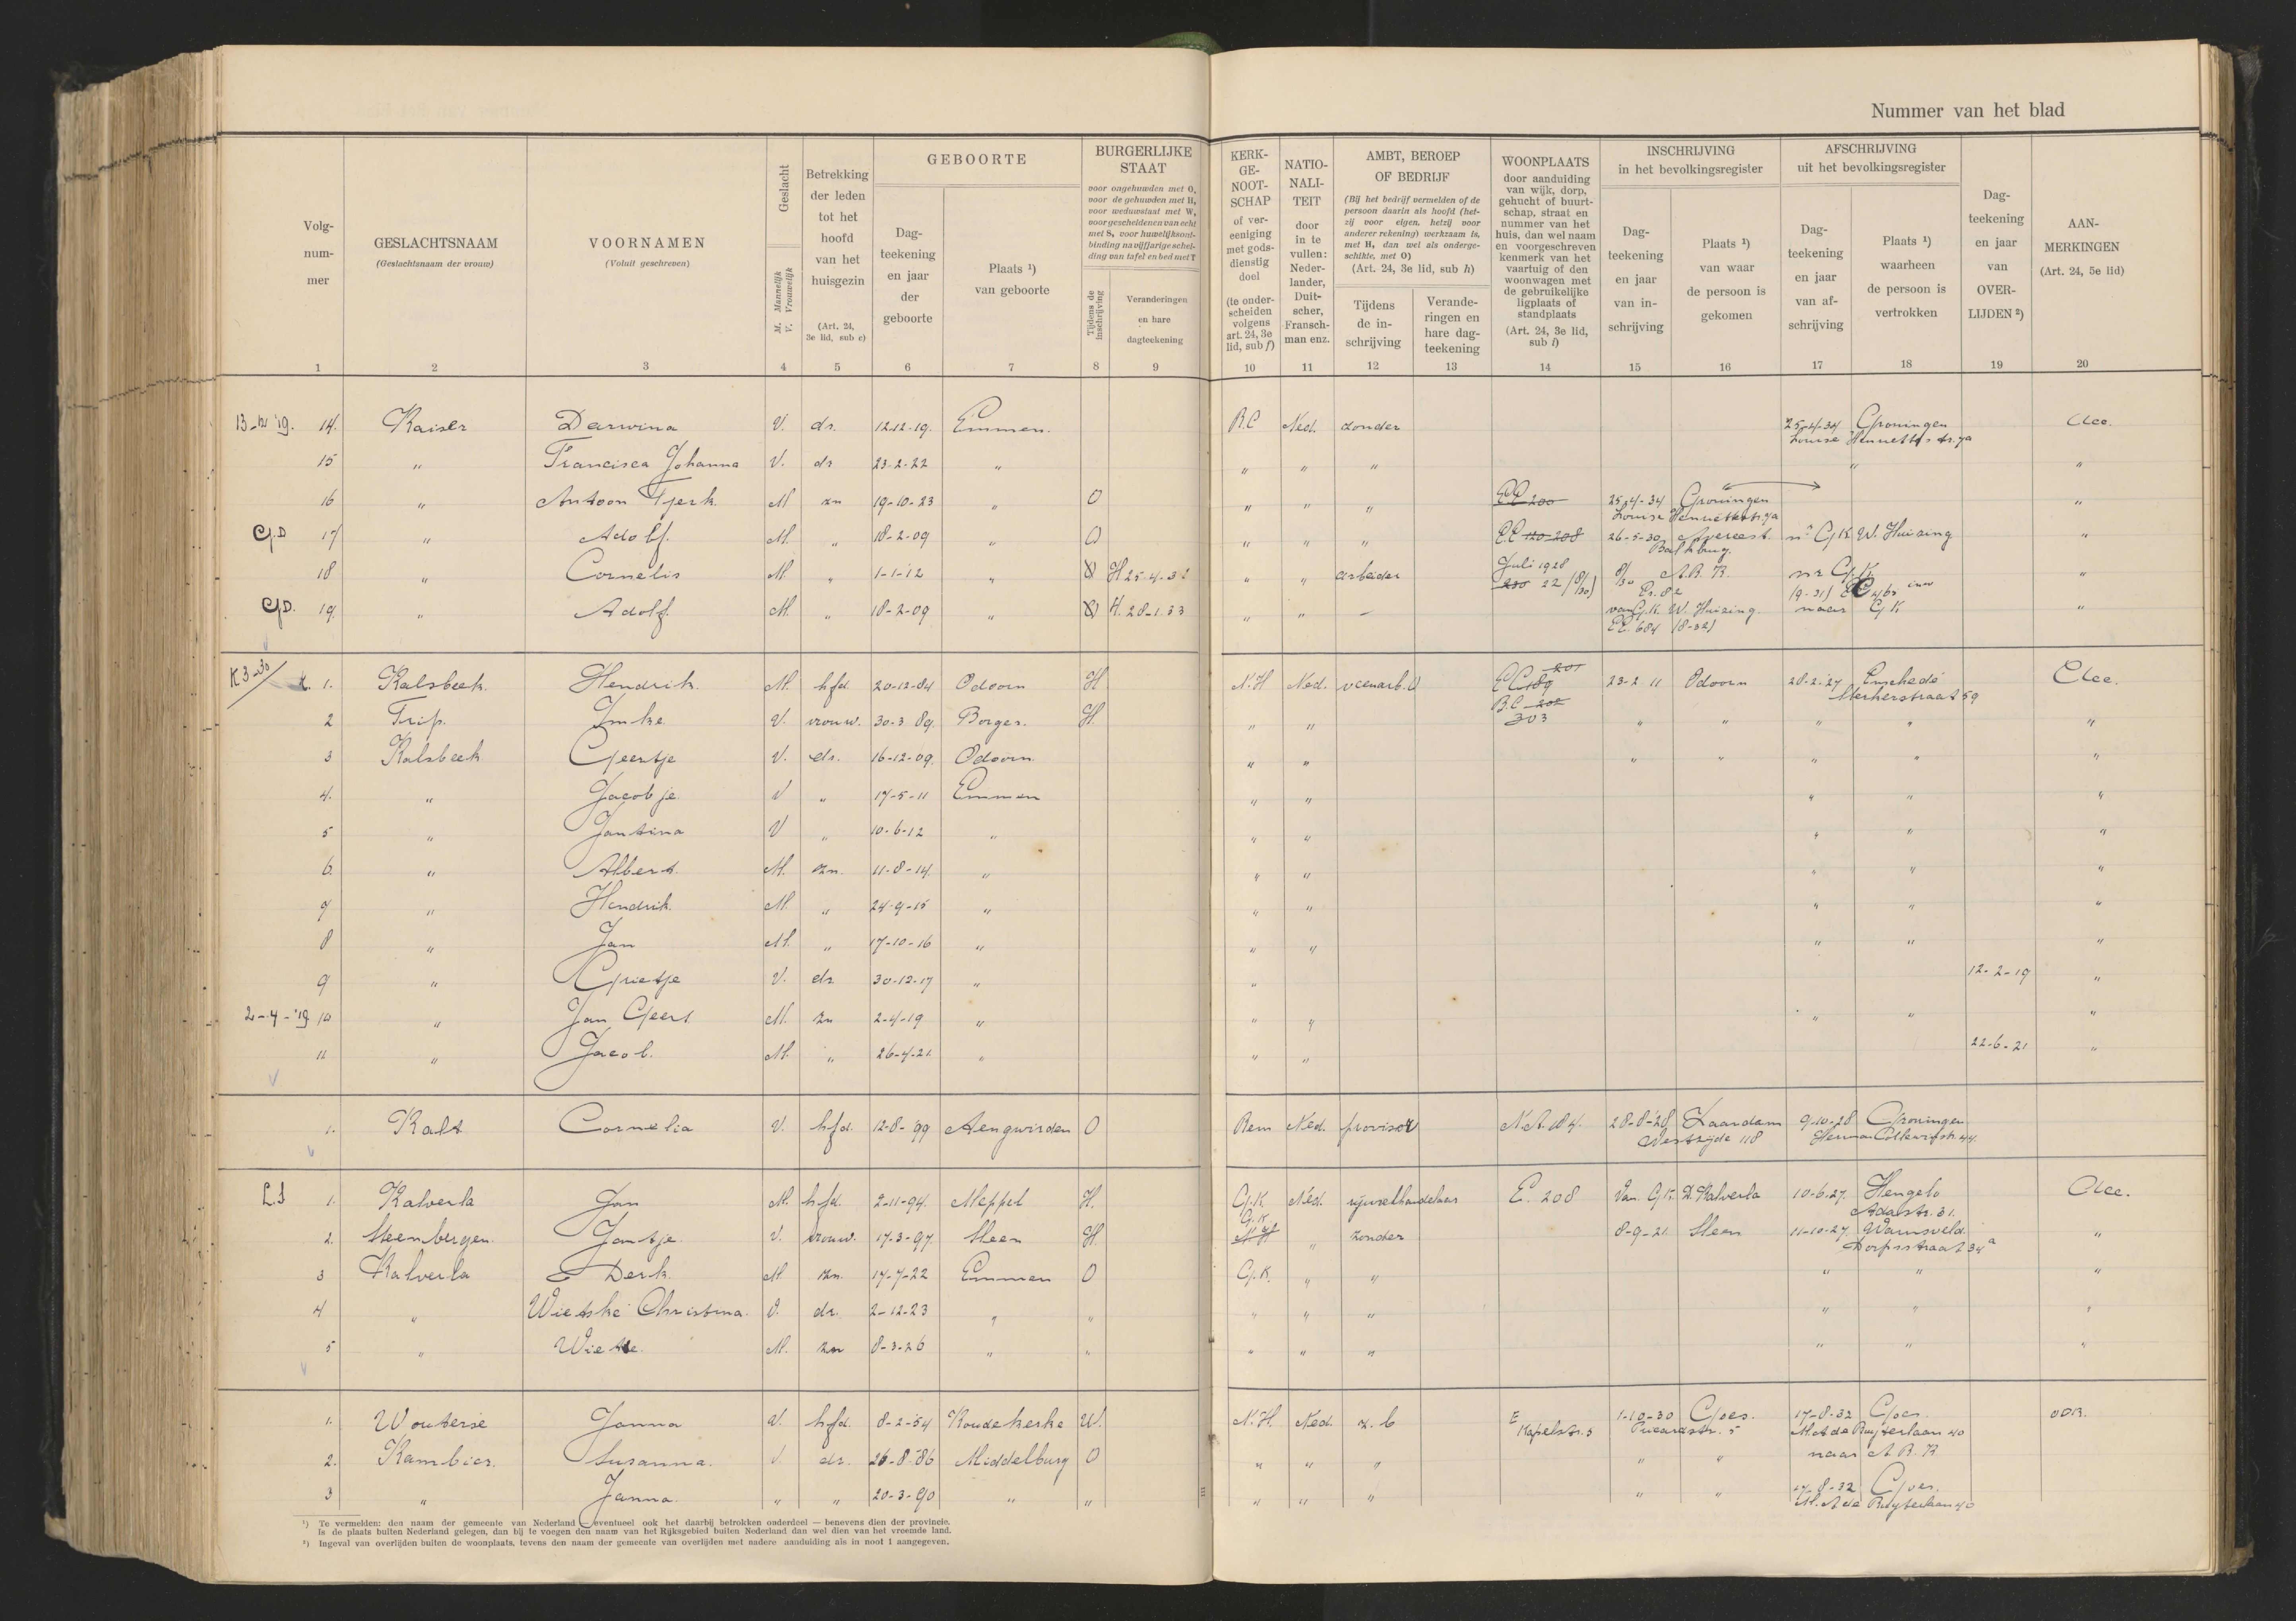 Nummer van het blad
Volg-
num-
mer
GESLACHTSNAAM
(Geslachtsnaam der vrouw)
VOORNAMEN
(Voluit geschreven)
Geslacht
M. Mannelijk
V. Vrouwelijk
Betrekking
der leden
tot het
hoofd
van het
huisgezin
(Art. 24,
3e lid, sub c)
GEBOORTE
Dag-
teekening
en jaar
der
geboorte
Plaats ¹)
van geboorte
BURGERLIJKE
STAAT
voor ongehuwden met O,
voor de gehuwden met H,
voor weduwstaat met W,
voor gescheidenen van echt
met S, voor huwelijksont-
binding na vijfjarige schei-
ding van tafel en bed met T
Tijdens de
inschrijving
Veranderingen
en hare
dagteekening
KERK-
GE-
NOOT-
SCHAP
of ver-
eeniging
met gods-
dienstig
doel
(te onder-
scheiden
volgens
art. 24, 3e
lid, sub f)
NATIO-
NALI-
TEIT
door
in te
vullen:
Neder-
lander,
Duit-
scher,
Fransch-
man enz.
AMBT, BEROEP
OF BEDRIJF
(Bij het bedrijf vermelden of de
persoon daarin als hoofd (het-
zij voor eigen, hetzij voor
anderer rekening) werkzaam is,
met H, dan wel als onderge-
schikte, met O)
(Art. 24, 3e lid, sub h)
Tijdens
de in-
schrijving
Verande-
ringen en
hare dag-
teekening
WOONPLAATS
door aanduiding
van wijk, dorp,
gehucht of buurt-
schap, straat en
nummer van het
huis, dan wel naam
en voorgeschreven
kenmerk van het
vaartuig of den
woonwagen met
de gebruikelijke
ligplaats of
standplaats
(Art. 24, 3e lid,
sub i)
INSCHRIJVING
in het bevolkingsregister
Dag-
teekening
en jaar
van in-
schrijving
Plaats ¹)
van waar
de persoon is
gekomen
AFSCHRIJVING
uit het bevolkingsregister
Dag-
teekening
en jaar
van af-
schrijving
Plaats ¹)
waarheen
de persoon is
vertrokken
Dag-
teekening
en jaar
van
OVER-
LIJDEN ²)
AAN-
MERKINGEN
(Art. 24, 5e lid)
1 2 3 4 5 6 7 8 9 10 11 12 13 14 15 16 17 18 19 20
14. Kaiser Darwina V. dr. 12-12-19. Emmen. R.C Ned. zonder 25-4-34 Groningen
15 " Francisca Johanna V. dr 23-2-22 " " " " " "
16 " Antoon Tjerk. M zn 19-10-23 " O " " " EE 200 25-4-34 Groningen "
G.D 17 " Adolf. M. " 18-2-09 " O " " " E.E 120 208 26-5-30 Avereest Balkbrug. nr GK W. Huizing "
18 " Cornelis M. " 1-1-12 " H 25-4-32 " " arbeider Juli 1928 A.B.R. "
G.D. 19. " Adolf. M. " 18-2-09 " H. 28-1-33 " " — van G.K. W. Huizing. naar GK "
EE. 684 (8-32)
K 3-30
1. Kalsbeek. Hendrik. M. hfd 20-12-84 Odoorn H N.H Ned. veenarb. O 23-2 11 Odoorn 28-2-27 Enschedé
2 Trip. Imke V. vrouw. 30-3 89. Borger. H. " " 303 " " " " "
3 Kalsbeek Geertje V. dr. 16-12-09. Odoorn. " " " " " " "
4. " Jacobje. V " 17-5-11 Emmen " " " " "
5 " Jantina V " 10-6-12 " " " " " "
6. " Albert. M. zn. 11-8-14. " " " " " "
7 " Hendrik. M. " 24-9-15 " " " " " "
8 " Jan M. " 17-10-16 " " " " " "
9 " Grietje V. dr 30-12-17 " " 12-2-19 "
2-4-'19 10 " Jan Geert M. zn 2-4-19 " " " " " "
11 " Jacob. M. " 26-4-21. " " " 22-6-21 "
1. Kalt Cornelia V. hfd. 12-8-'99 Aengwirden O Rem Ned. provisor 28-8-'28 Zaandam 9-10-28 Groningen
Westzijde 118
1. Kalverla Jan M. hfd. 2-11-94. Meppel H. G.K. Ned. E. 208 Van GK. D. Kalverla 10-6-27. Hengelo
Adastr. 31.
2. Steenbergen. Jantje. V. vrouw. 17-3-97. Sleen H. G.K N.H " zonder 8-9-21 Sleen 11-10-27. Warnsveld. "
Dorpsstraat 34 a
3 Kalverla Derk. M zn. 17-7-22 Emmen O G.K. " " " " "
4 " Wietske Christina. V. dr. 2-12-23 " " " " " " " "
5 " M. zn 8-3-26 " " " " " " " "
1. Wouterse Janna V. hfd. 8-2-54 Koudekerke W. N.H. Ned. z.b E Kapelstr. 5 1-10-30 Goes. 17-8-32 Goes. ODR.
M.A de Ruyterlaan 40
2. Kambier. Susanna. V dr. 26-8-'86 Middelburg O " " " " " naar A.B.R
3 " Janna. " " 20-3-90 " " " " " " " 17-8-32 Goes.
M. A de Ruyterlaan 40
¹) Te vermelden: den naam der gemeente van Nederland — eventueel ook het daarbij betrokken onderdeel — benevens dien der provincie.
Is de plaats buiten Nederland gelegen, dan bij te voegen den naam van het Rijksgebied buiten Nederland dan wel dien van het vreemde land.
²) Ingeval van overlijden buiten de woonplaats, tevens den naam der gemeente van overlijden met nadere aanduiding als in noot 1 aangegeven.